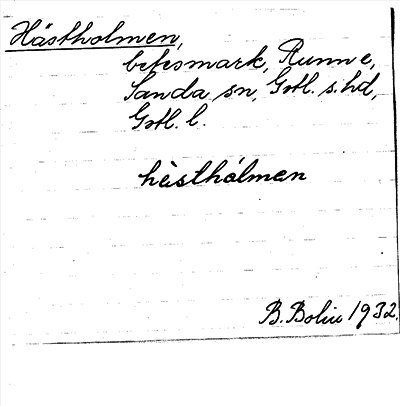 Hästholmen,
betesmark, Runne,
Sanda sn, Gotl. s. hd,
Gotl. l.
hàsthólmen
B. Bolin 1932.